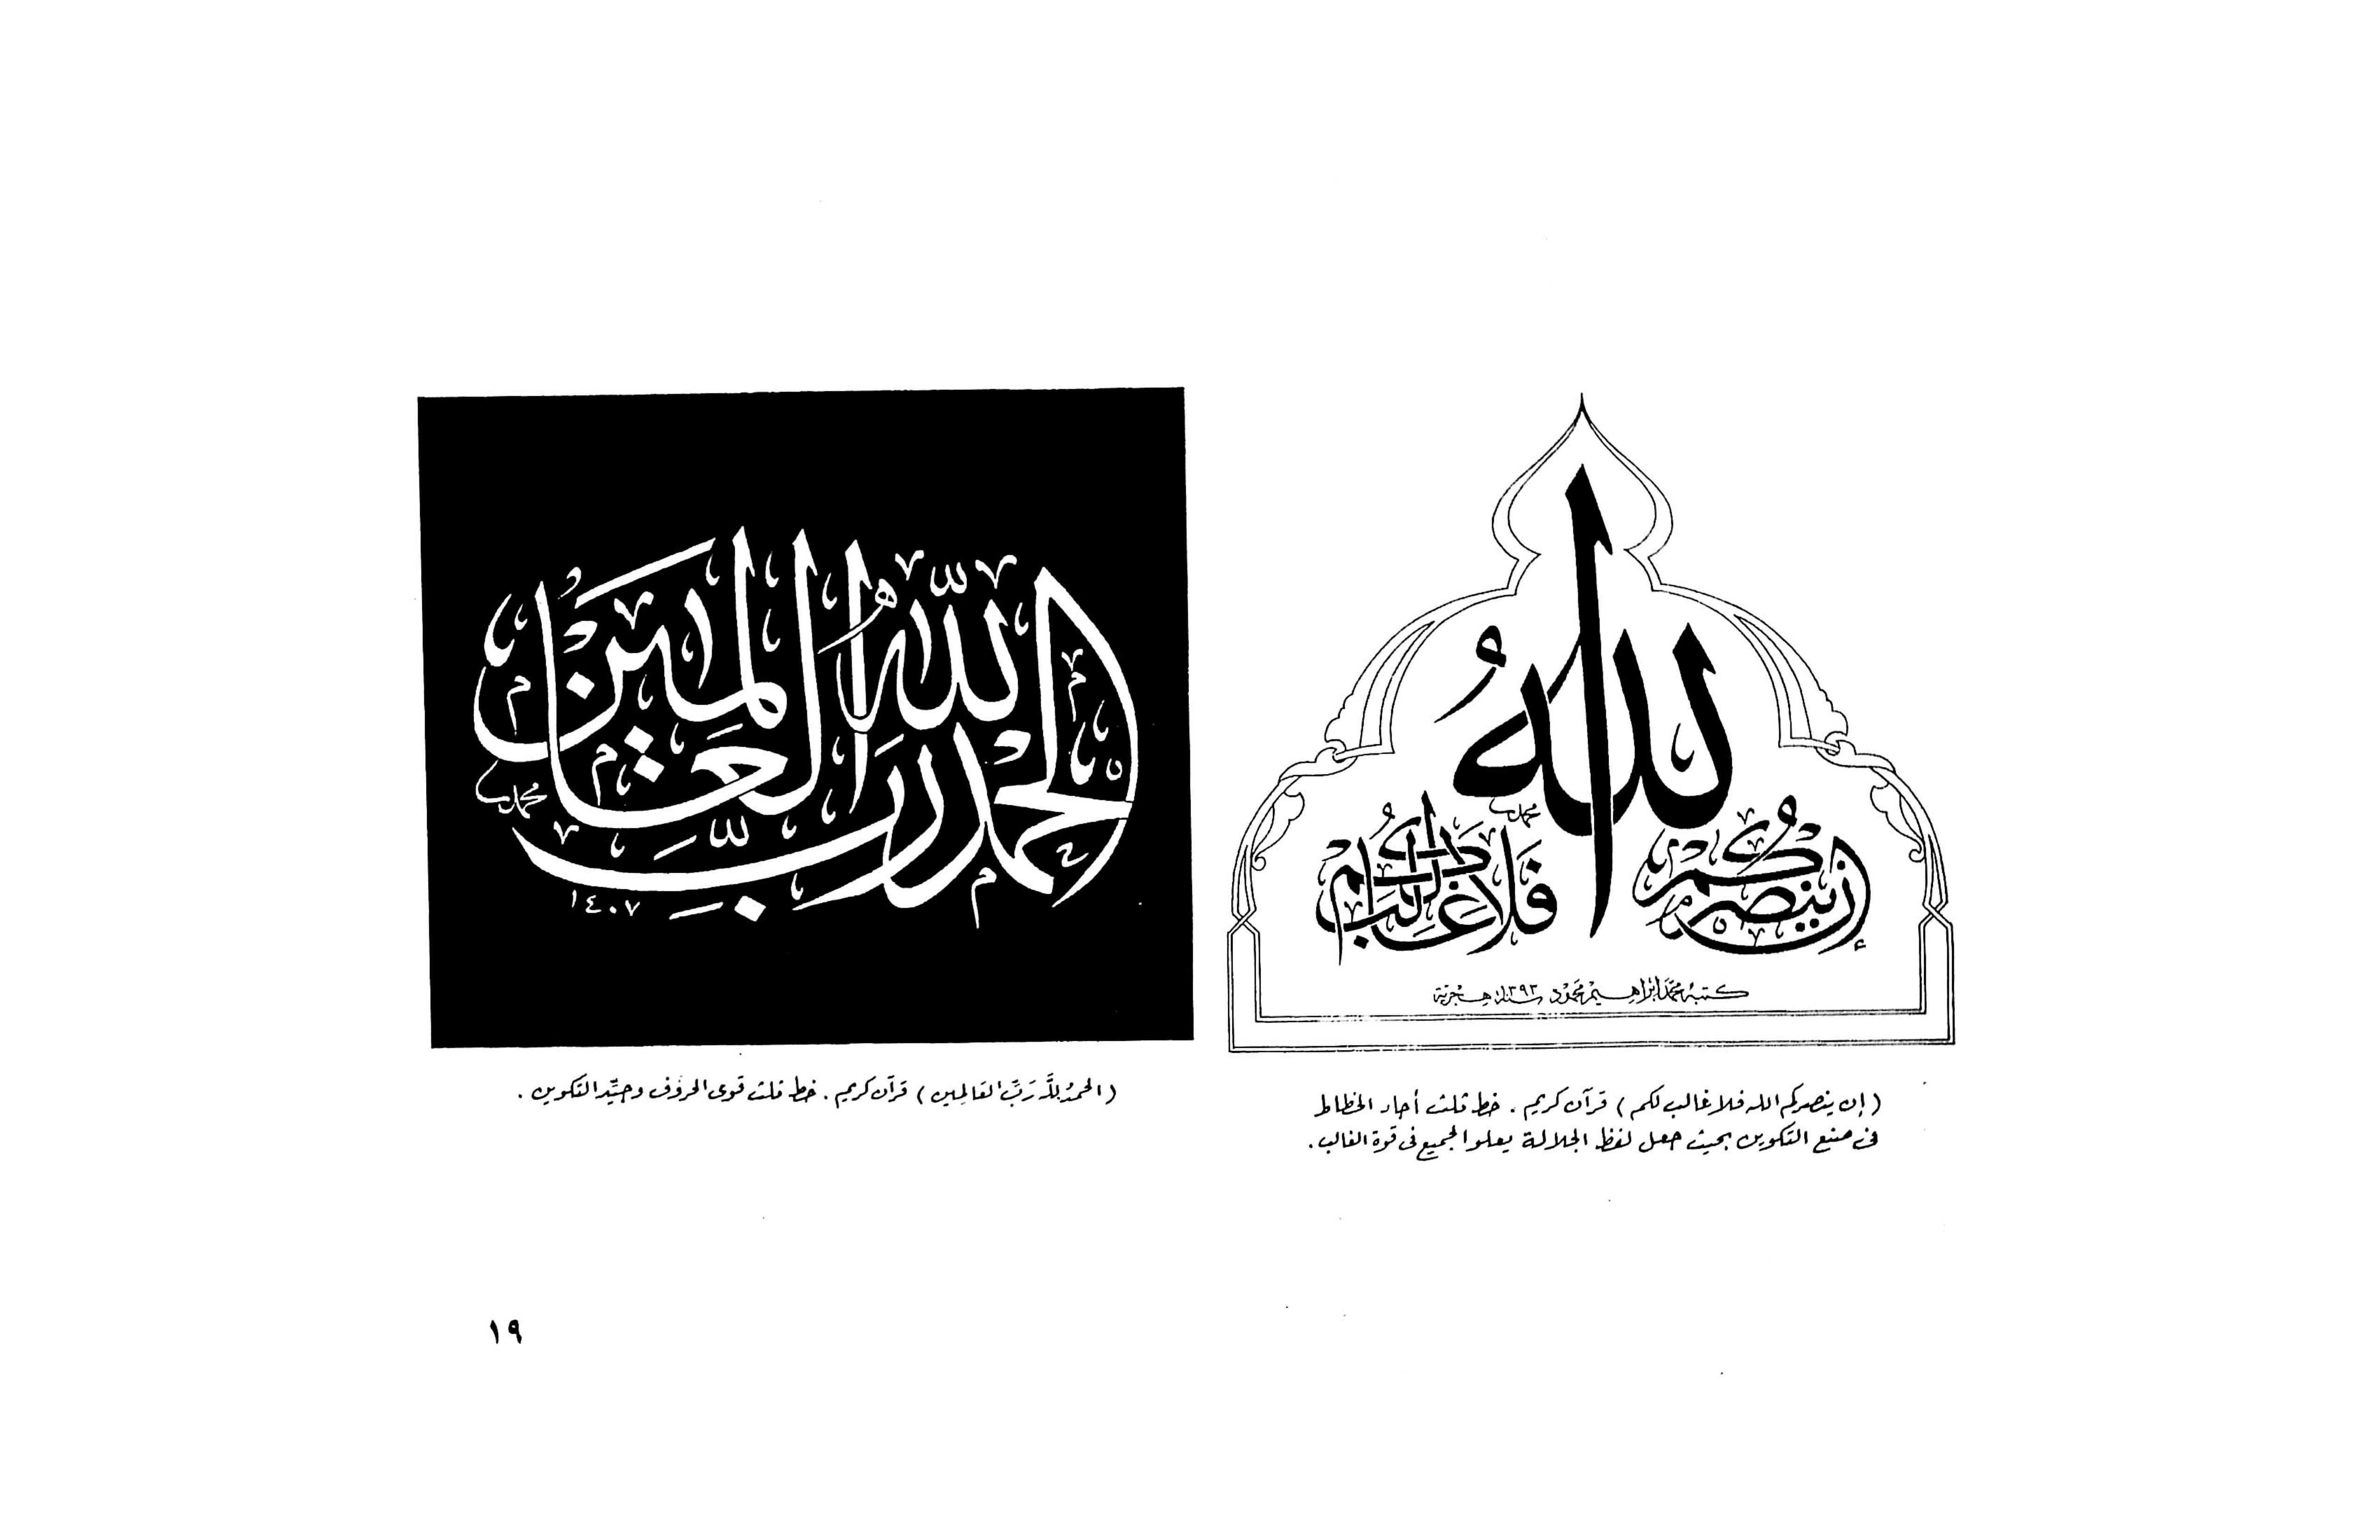 إن ينصركم الله فلا غالب لكم
كتبه محمد ابراهيم محمود سنة ١٣٩٣ هجرية
(إن ينصركم الله فلا غالب لكم) قرآن كريم. خط ثلث أجاد الخطاط
في صنع التكوين بحيث جعل لفظ الجلالة يعلو الجميع في قوة الغالب.
الحمد لله رب العالمين
محمد
١٤٠٧
(الحمدُ للَّه رَبِّ العَالمِين) قرآن كريم. خط ثلث قوى الحروف وجيِّد التكوين.
١٩